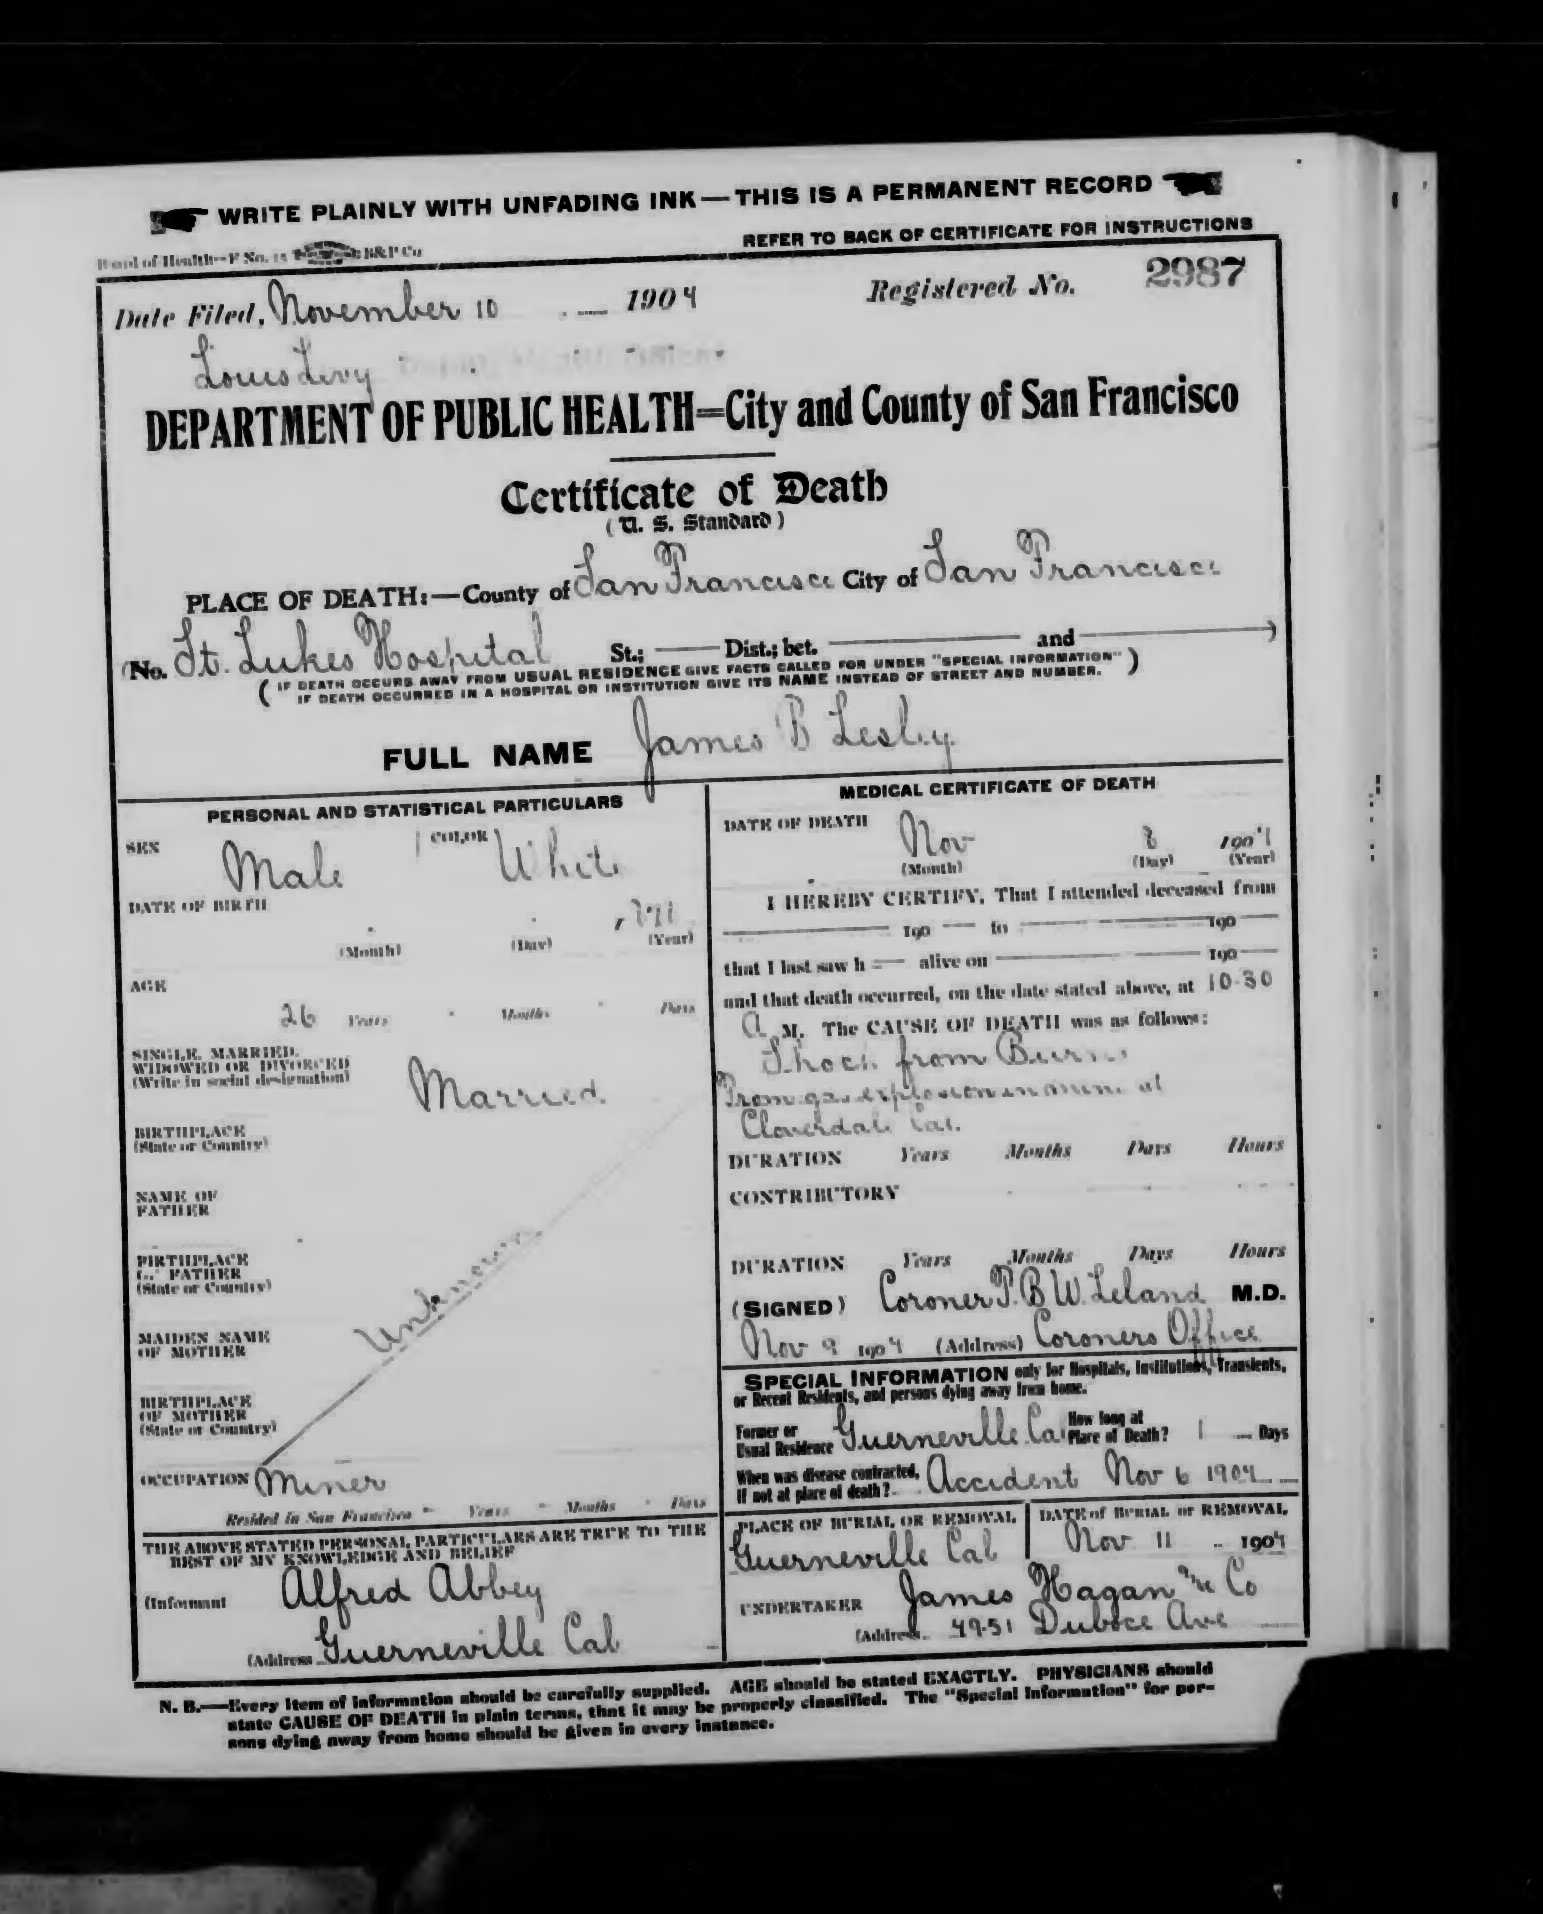 WRITE PLAINLY WITH UNFADING INK — THIS IS A PERMANENT RECORD
REFER TO BACK OF CERTIFICATE FOR INSTRUCTIONS
Board of Health—F No. 15 B&P Co
Date Filed, November 10 1904 Registered No. 2987
Louis Levy
DEPARTMENT OF PUBLIC HEALTH=City and County of San Francisco
Certificate of Death
(U. S. Standard)
PLACE OF DEATH:—County of San Francisco City of San Francisco
(No. St. Lukes Hospital St.; Dist.; bet. and )
( IF DEATH OCCURS AWAY FROM USUAL RESIDENCE GIVE FACTS CALLED FOR UNDER "SPECIAL INFORMATION" )
IF DEATH OCCURRED IN A HOSPITAL OR INSTITUTION GIVE ITS NAME INSTEAD OF STREET AND NUMBER.
FULL NAME James B Lesley
PERSONAL AND STATISTICAL PARTICULARS
SEX Male COLOR White
DATE OF BIRTH
(Month) (Day) (Year)
AGE
26 Years Months Days
SINGLE, MARRIED,
WIDOWED OR DIVORCED
(Write in social designation) Married
BIRTHPLACE
(State or Country)
NAME OF
FATHER
BIRTHPLACE
OF FATHER
(State or Country)
Unknown
MAIDEN NAME
OF MOTHER
BIRTHPLACE
OF MOTHER
(State or Country)
OCCUPATION Miner
Resided in San Francisco Years Months Days
THE ABOVE STATED PERSONAL PARTICULARS ARE TRUE TO THE
BEST OF MY KNOWLEDGE AND BELIEF
(Informant Alfred Abbey
(Address Guerneville Cal
MEDICAL CERTIFICATE OF DEATH
DATE OF DEATH Nov 8 1904
(Month) (Day) (Year)
I HEREBY CERTIFY, That I attended deceased from
190 to 190
that I last saw h alive on 190
and that death occurred, on the date stated above, at 10-30
A M. The CAUSE OF DEATH was as follows:
Shock from Burns
From gas explosion in mine at
Cloverdale Cal.
DURATION Years Months Days Hours
CONTRIBUTORY
DURATION Years Months Days Hours
(SIGNED) Coroner T. B W. Leland M.D.
Nov 9 1904 (Address) Coroners Office
SPECIAL INFORMATION only for Hospitals, Institutions, Transients,
or Recent Residents, and persons dying away from home.
Former or
Usual Residence Guerneville Cal How long at
Place of Death? 1 Days
When was disease contracted,
If not at place of death? Accident Nov 6 1904
PLACE OF BURIAL OR REMOVAL DATE of BURIAL or REMOVAL
Guerneville Cal Nov 11 1904
UNDERTAKER James Hagan & Co
(Address 49-51 Duboce Ave
N. B.—Every item of information should be carefully supplied. AGE should be stated EXACTLY. PHYSICIANS should
state CAUSE OF DEATH in plain terms, that it may be properly classified. The "Special Information" for per-
sons dying away from home should be given in every instance.